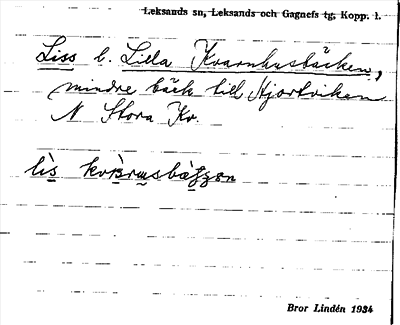 Leksands sn, Leksands och Gagnefs tg, Kopp. l.
Liss l. Lilla Kvarnhusbäcken,
mindre bäck till Hjortviken
N Stora Kv.
lis
Bror Lindén 1934